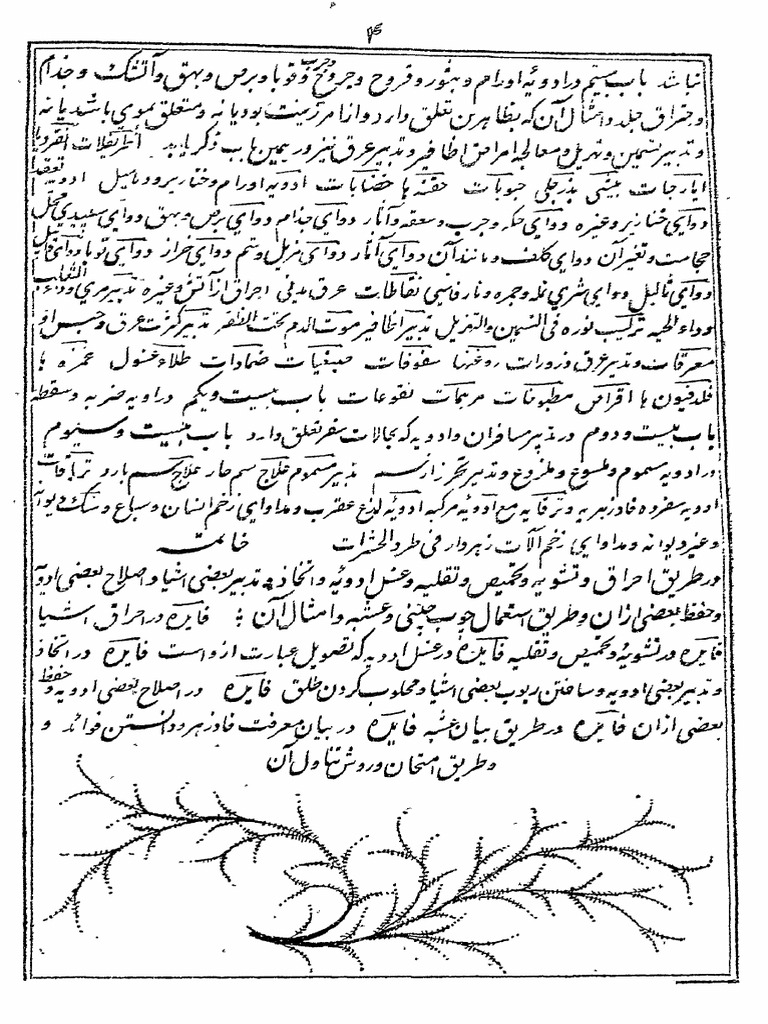 ۴
نباشد باب بیستم در ادویه اورام و بثور و قروح و جروح و جرب و قوبا و برص و بهق و آتشک و جذام
و احتراق جلد و امثال آن که بظاهر بدن تعلق دارد و از امر زینت بود یا نه و متعلق بموی باشد یا نه
و تدبیر تسمین و تهزیل و معالجه امراض اظافیر و تدبیر عرق نیز در یمین باب ذکر یابد اطریفلات انقرویا
ایارجات بیشی بذر جلی حبوبات حقنه ها خضابات ادویه اورام و خنازیر و دمامیل ادویه
دوای خنازیر و غیره دوای حکه و جرب و سعفه و آثار دوای جذام دوای برص و بهق دوای سپیدی محل
حجامت و تغیر آن دوای کلف و مانند آن دوای آثار دوای مزیل وشم دوای حزاز دوای قوبا
دوای ثالیل دوای شری نمله و جمره و نار فارسی نفاطات عرق مدنی احراق از آتش و غیره تدبیر موی و داء الثعلب
و داء الحیه ترکیب نوره فی التسمین و التهزیل تدبیر اظافیر موت الدم تحت الظفر تدبیر کثرت عرق و حبس او
معرقات و تدبیر عرق ذرورات روغنها سفوفات صبغیات ضمادات طلاء غسول غمزه ها
فلدفیون ها اقراص مطبوخات مرهمات نقوعات باب بیست و یکم در ادویه ضربه و سقطه
باب بیست و دوم در تدبیر مسافران و ادویه که بحالات سفر تعلق دارد باب بیست و سیوم
در ادویه سموم و ملسوع و ملدوغ و تدبیر تحرز از سم تدبیر مسموم علاج سم حار علاج سم بارد تریاقات
ادویه مفرده فادزهریه و تریاقیه مع ادویه مرکبه ادویه لدغ عقرب و مداوای زخم انسان و سباع و سگ دیوانه
و غیر دیوانه و مداوای زخم آلات زهردار فی طرد الحشرات خاتمه
در طریق احراق و تشویه و تحمیص و تقلیه و غسل ادویه و اتخاذ و تدبیر بعضی اشیا و اصلاح بعضی ادویه
و حفظ بعضی ازان و طریق استعمال چوب چینی و عشبه و امثال آن فایده در احراق اشیا
فایده در تشویه و تحمیص و تقلیه فایده در غسل ادویه که تصویل عبارت ازوست فایده در اتخاذ
و تدبیر بعضی ادویه و ساختن ربوب بعضی اشیا و محلوب کردن طلق فایده در اصلاح بعضی ادویه و حفظ
بعضی ازان فایده در طریق بیان عشبه فایده در بیان معرفت فادزهر و دانستن فوائد و
و طریق امتحان و روش تناول آن